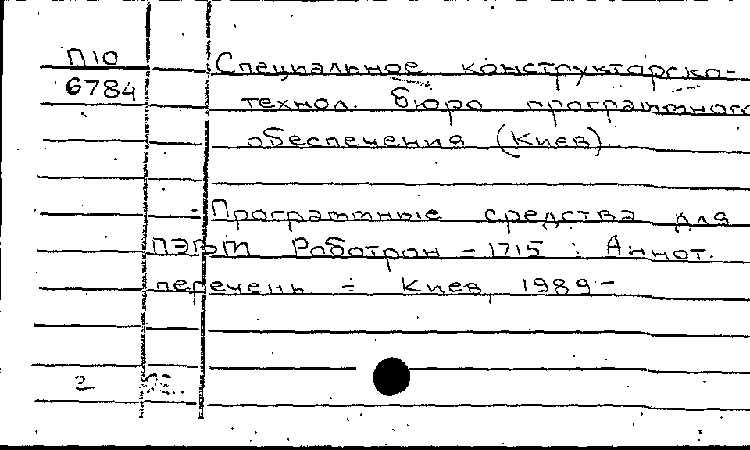 П10
6784
Специальное конструкторско-
технол. бюро программного
обеспечения (Киев)
Программные средства для
ПЭВМ Роботрон - 1715 : Аннот.
перечень. - Киев, 1989 -
2